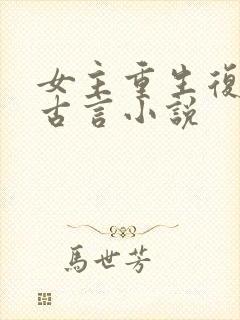 女主重生復
古言小説
馬世芳